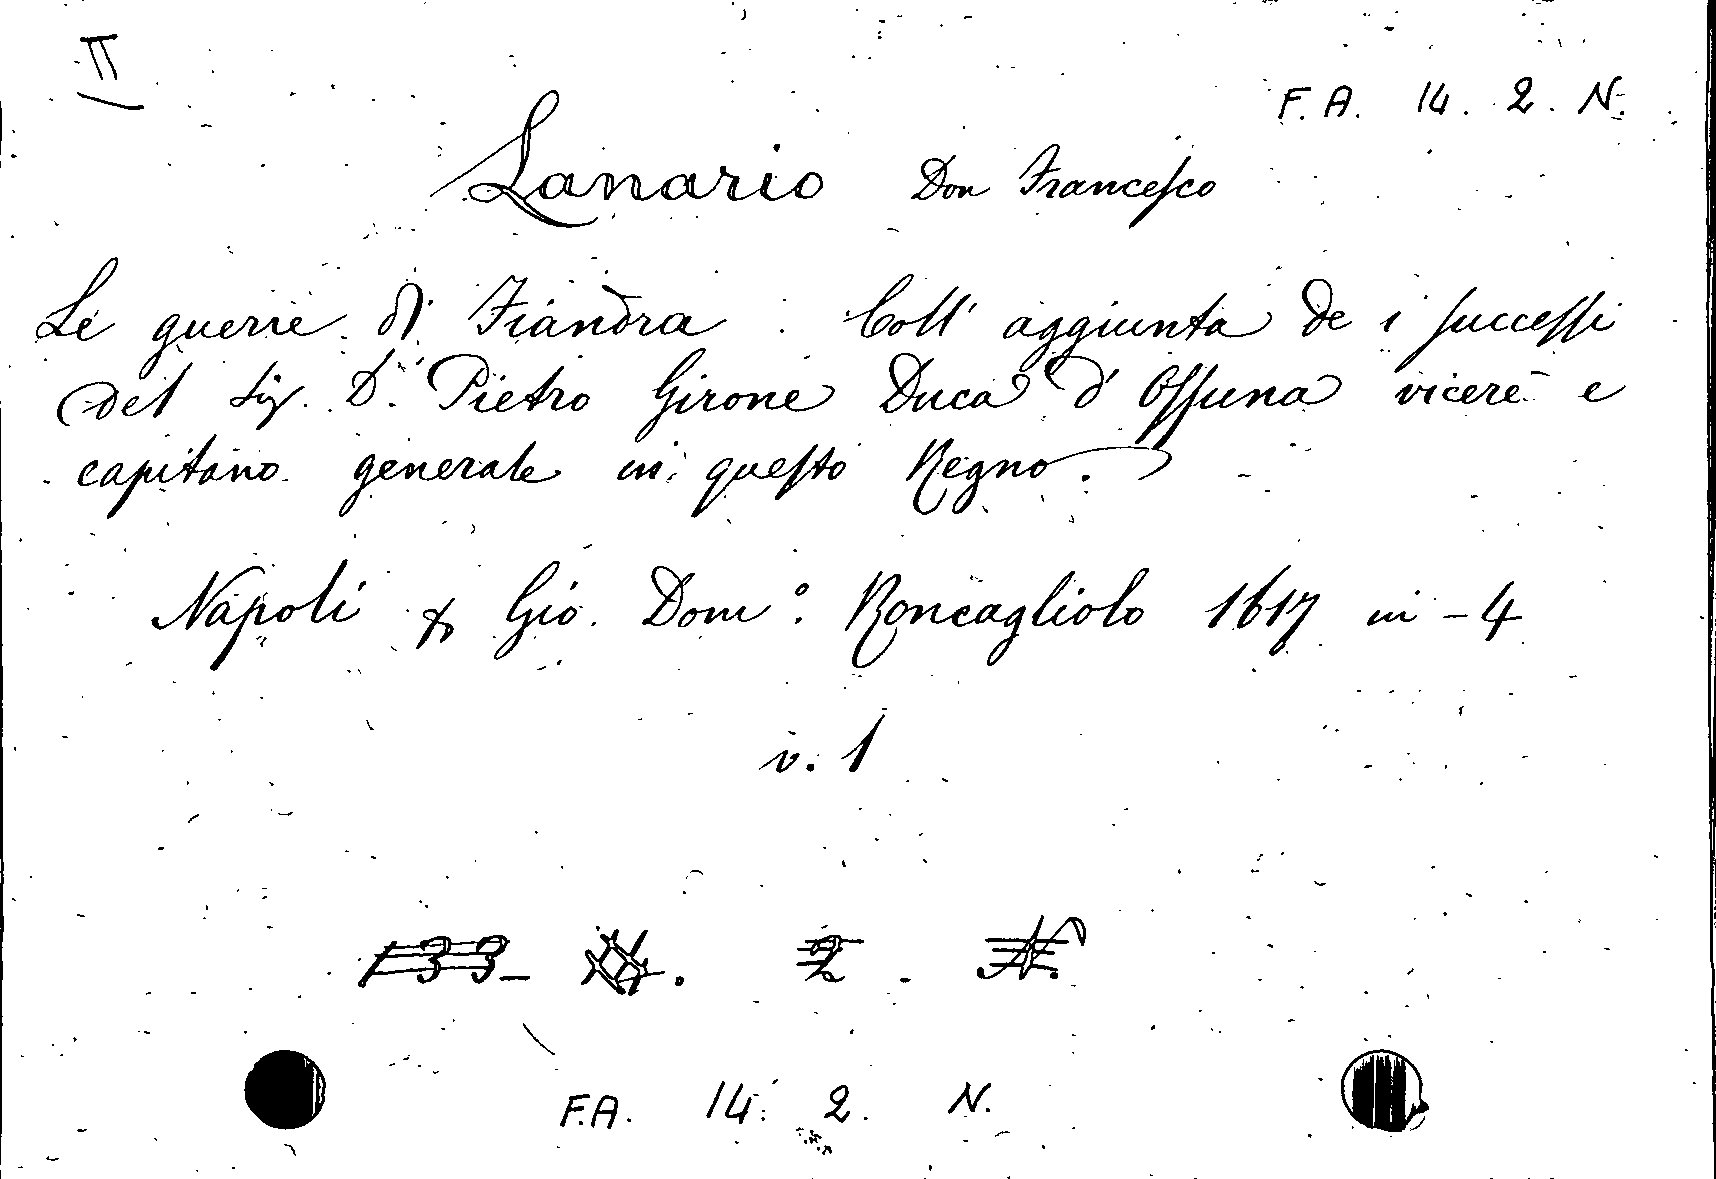 II
F. A. 14. 2. N.
Lanario Don Francesco
Le guerre di Fiandra. Coll' aggiunta de i successi
del Sig. D. Pietro Girone Duca d' Ossuna vicerè e
capitano generale in questo Regno.
Napoli Gio. Dom.º Roncagliolo 1617 in-4
v. 1
133- 2. N.
F.A. 14. 2. N.